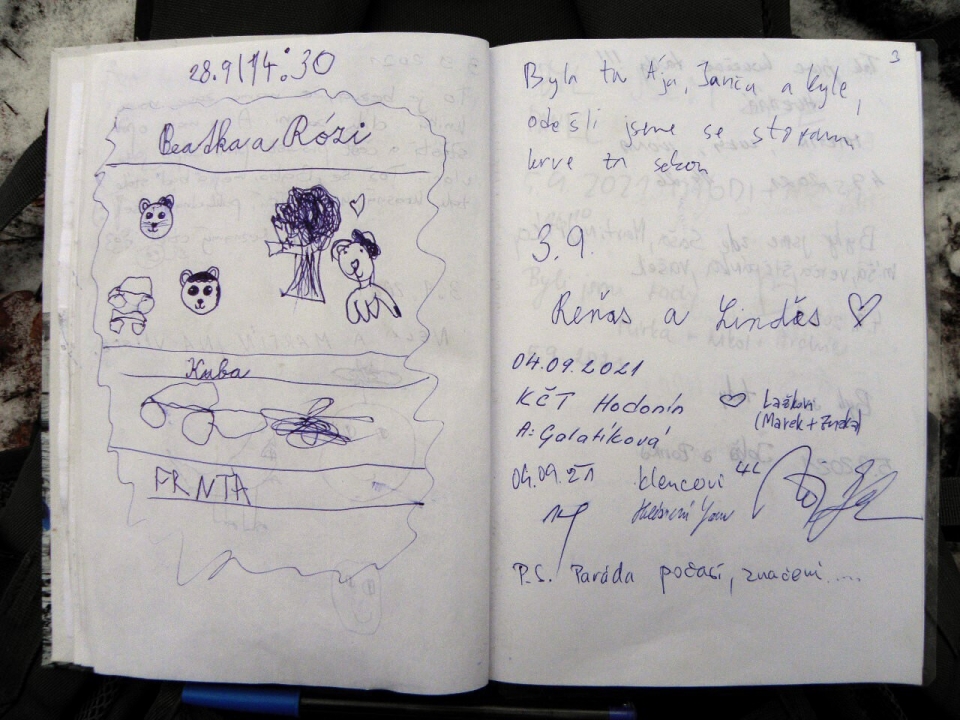 28.9/14:30
Beatka a Rózi
Kuba
FRNTA
3
Byla tu Ája, Janča a kyle,
odešli jsme se stopami
krve tu
3.9.
Reňas a Linděs
04.09.2021
KČT Hodonín
A: Galatíková
Laškovi
(Marek + Zuzka)
04.09.21 klencovi
P.S. Paráda počasí, značení....